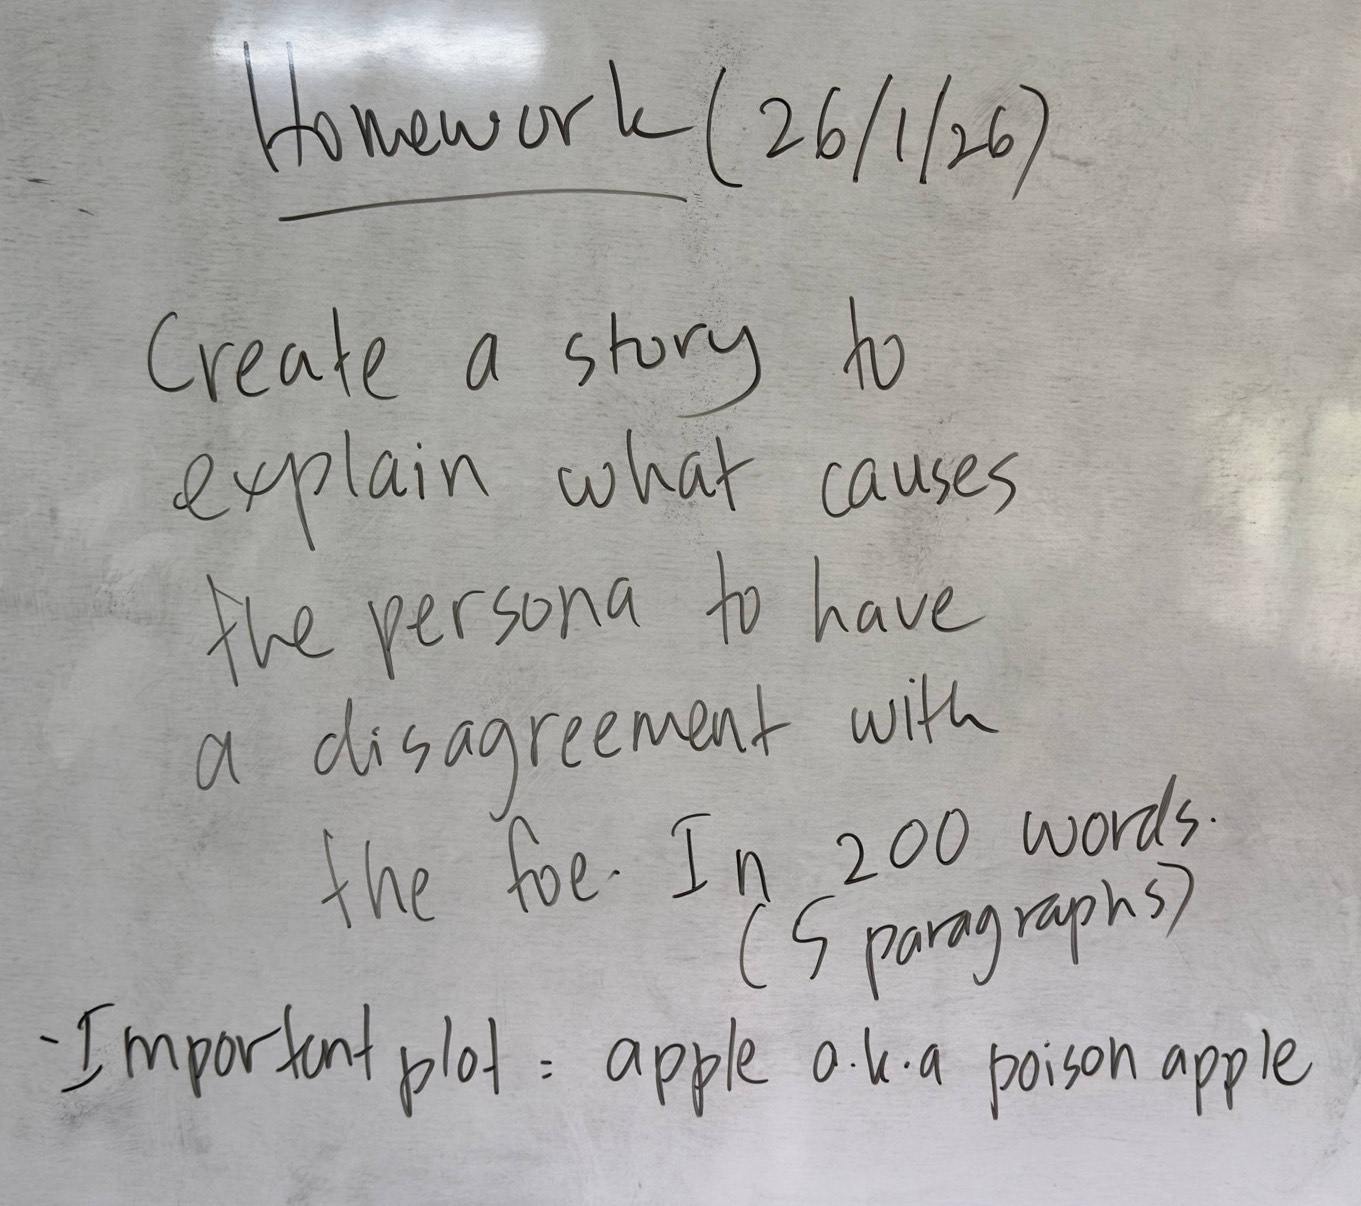 Homework (26/1/26)
Create a story to
explain what causes
the persona to have
a disagreement with
the foe. In 200 words.
(5 paragraphs)
-Important plot = apple a.k.a poison apple